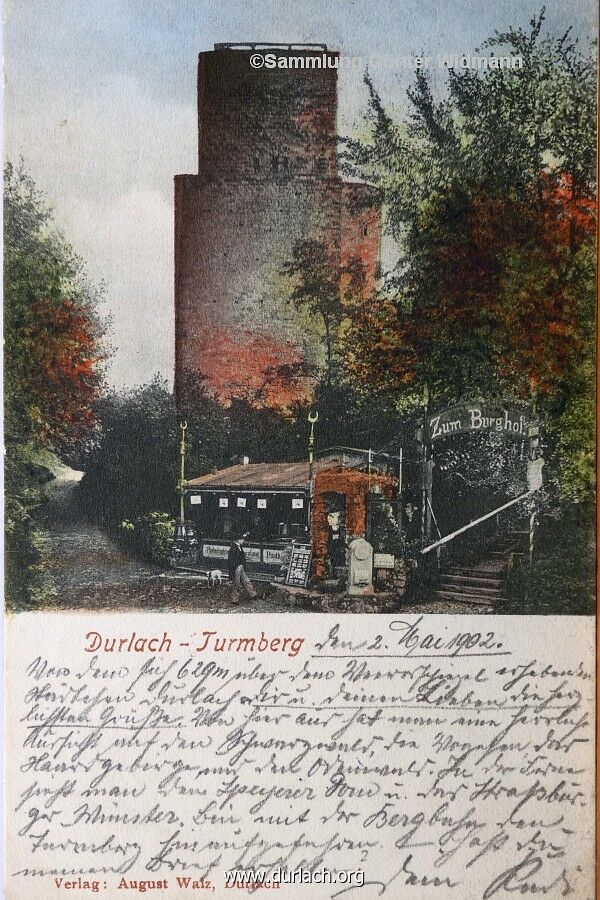 ©Sammlung Günter Widmann
Zum Burghof
Durlach - Turmberg den 2. Mai 1902.
Von dem sich 629m über dem Meeresspiegel erhebenden
Städtchen Durlach dir u. deinen Lieben die herz
lichsten Grüsse. Von hier aus hat man eine herrliche
Aussicht auf den Schwarzwald, die Vogesen das
Haardgebirge und den Odenwald. In der Ferne
sieht man den Speyerer Dom u. das Straßbur-
ger Münster. Bin mit der Bergbahn den
Turmberg hinaufgefahren. Hast du
meinen Brief
dein
Verlag: August Walz, Durlach
www.durlach.org